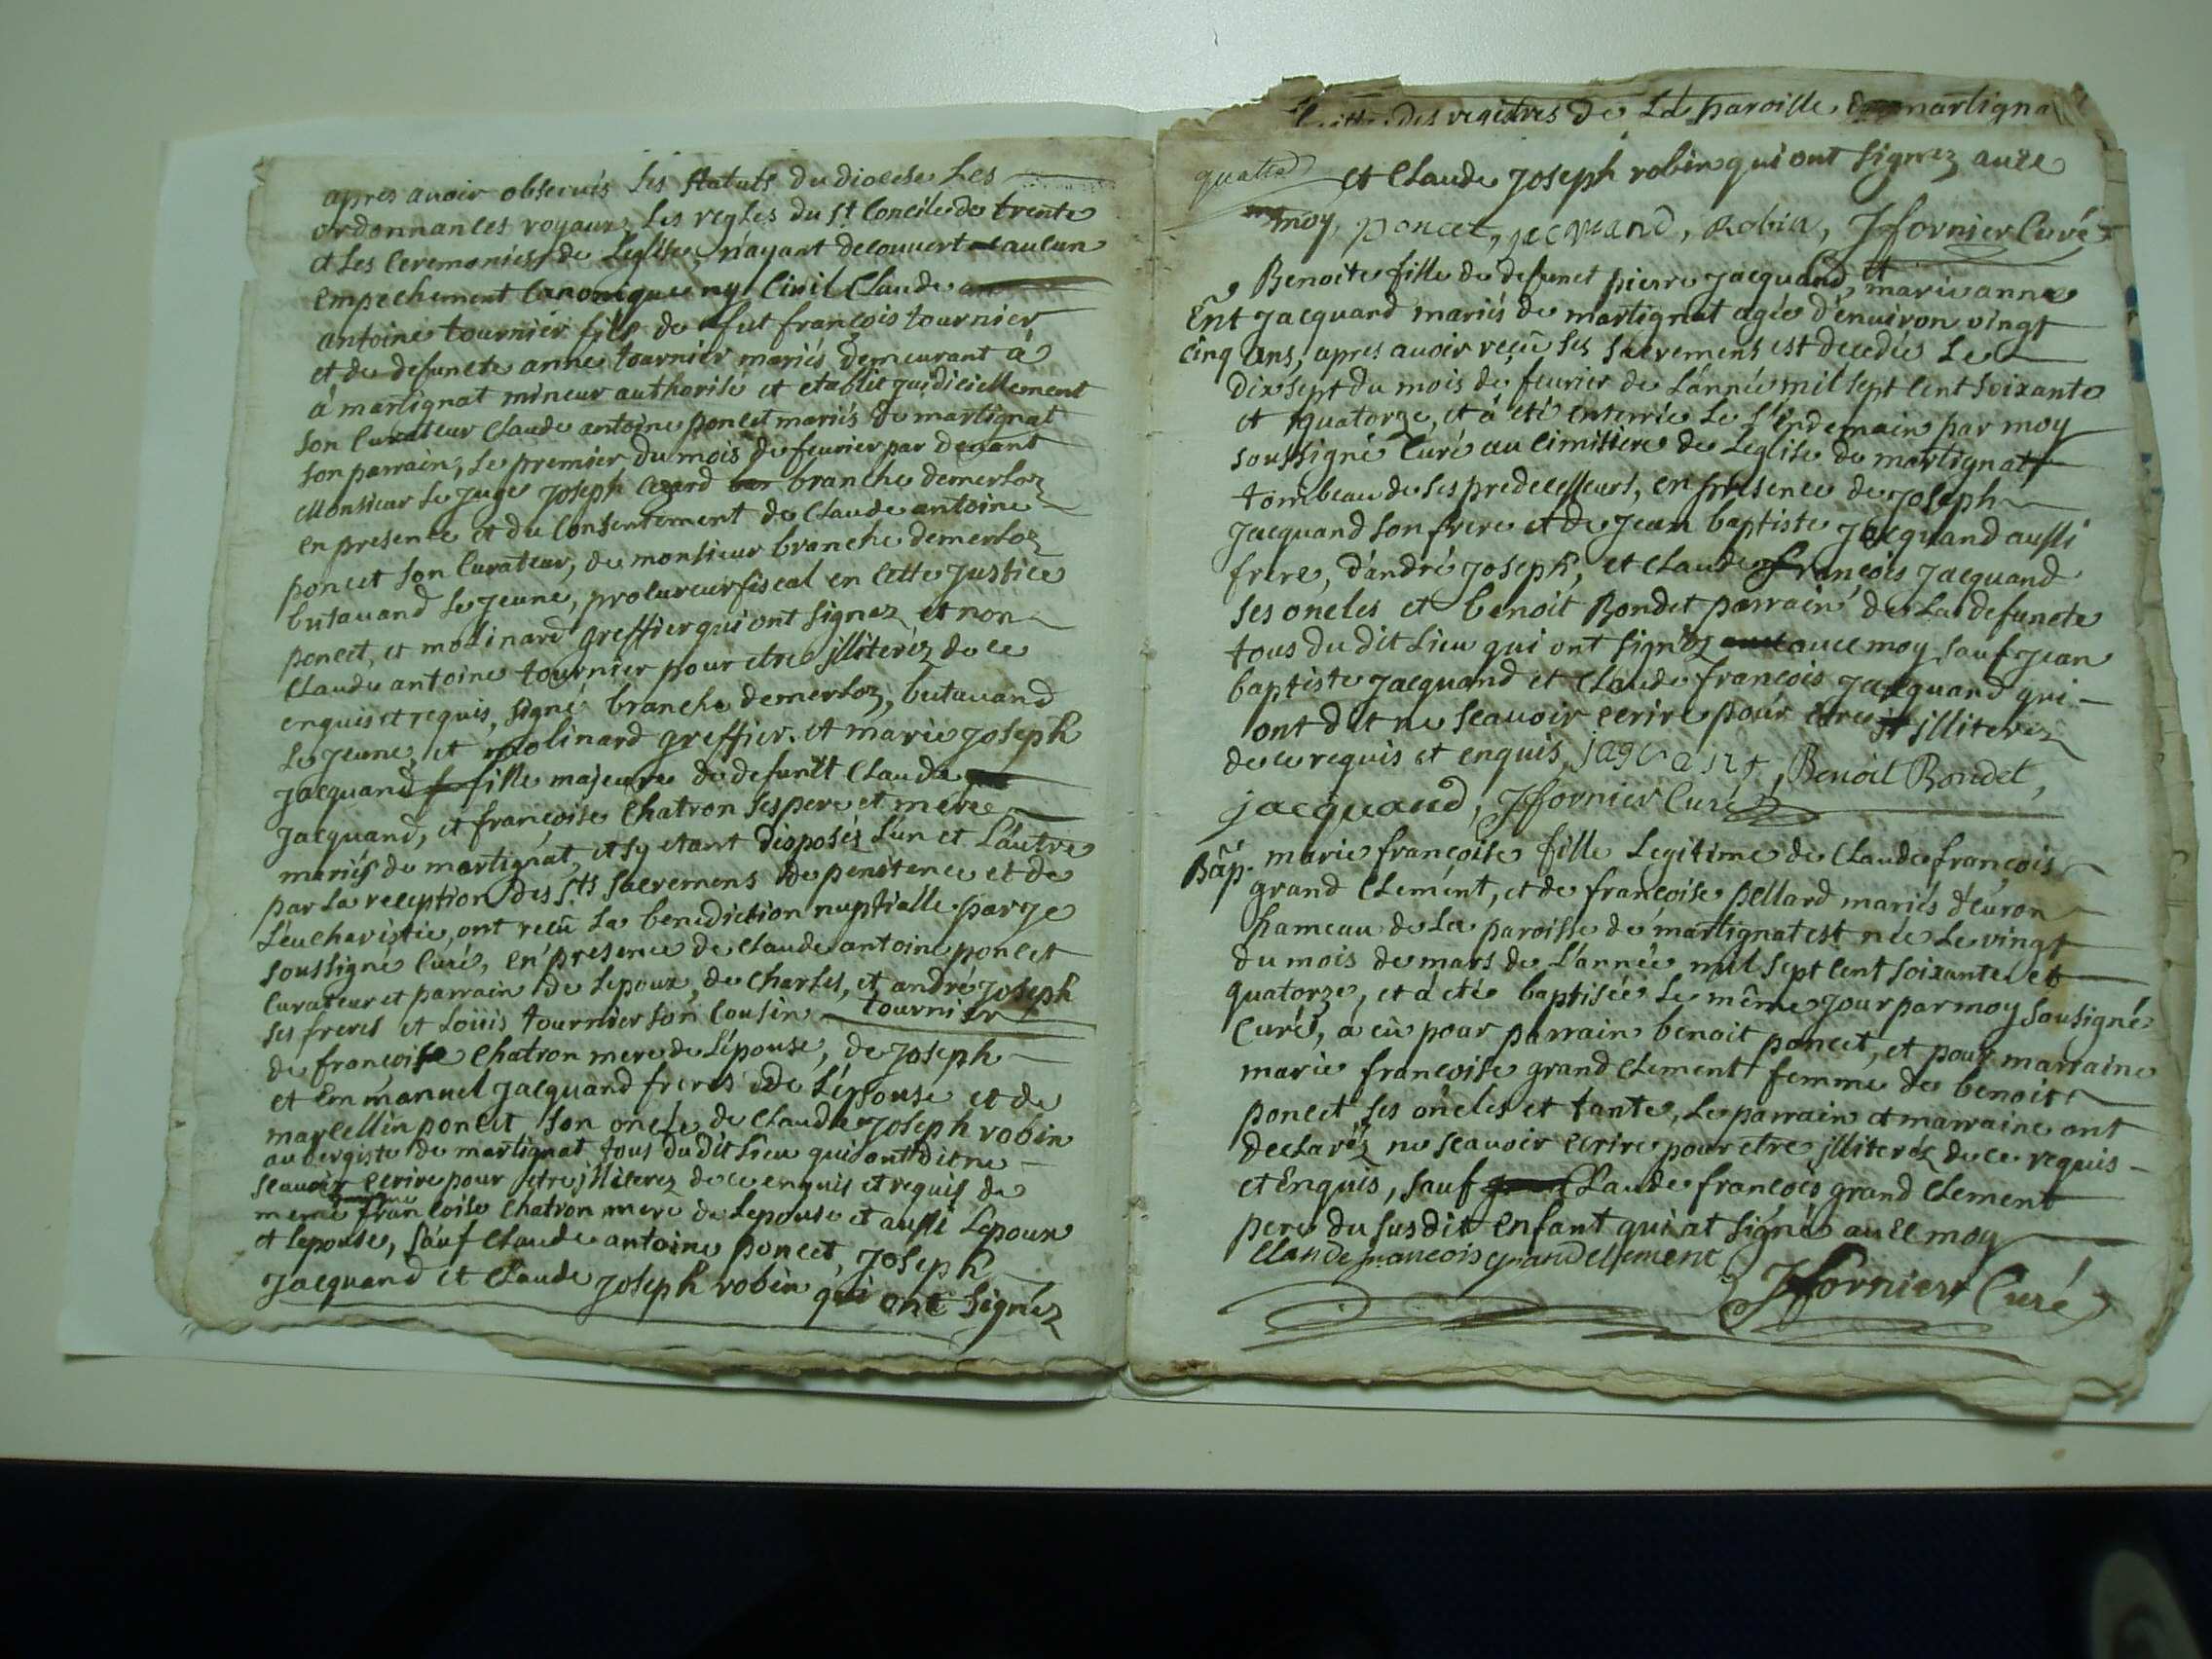 apres avoir observés les statuts du diocese les
ordonnances royaux, les regles du st. Concile de trente
et les ceremonies de Leglise, n'ayant decouvert aucun
empechement canonique ny civil Claude
antoine tournier fils de fut françois tournier
et de defuncte anne tournier mariés demeurant á
á martignat mineur authorisé et etablie juidiciellement
son curateur claude antoine poncet mariés de martignat
son parrain, le premier du mois de fevrier par devant
Monsieur le juge joseph branche demerloz
en presence et du consentement de claude antoine
poncet son curateur, de monsieur branche demerloz
butavand le jeune, procureur fiscal en cette justice
poncet, et molinard greffier qui ont signez et non
claude antoine tournier pour etre illiteréz de ce
enquis et requis, signé branche demerloz, butavand
le jeune, et molinard greffier. et marie joseph
jacquand fille majeure de defunct claude
jacquand, et françoise chatron ses pere et mere
mariés de martignat, et sy etant disposés l'un et l'autre
par la reception des sts sacremens de penitence et de
l'eucharistie, ont reçu la benediction nuptialle par je
soussigné curé, en presence de claude antoine poncet
curateur et parrain de l'epoux, de charles, et andré joseph
ses freres et Loüis tournier son cousin tournier
de francoise chatron mere de l'épouse, de joseph
et emmanuel jacquand freres de l'épouse et de
marcellin poncet son oncle de claude joseph robin
aubergiste de martignat tous dudit lieu qui ont dit ne
scavoir ecrire pour etre illiterez de ce enquis et requis de
meme francoise chatron mere de lepouse et aussi lepoux
et lepouse, sauf claude antoine poncet, joseph
jacquand et claude joseph robin qui ont signéz
des registres de La paroisse martigna
quatre et claude joseph robin qui ont signez avec
moy, poncet, jacquand, Robin, Jfornier Curé
Benoite fille de defunct pierre jacquand, et marie anne
Ent jacquand mariés de martignat agée d'environ vingt
cinq ans, apres avoir reçû ses sacremens est decedée le
dix sept du mois de fevrier de l'année mil sept cent soixante
et quatorze, et á eté enterrée le lendemain par moy
soussigné curé au cimitiere de Leglise de martignat
tombeau de ses predecesseurs, en presence de joseph
jacquand son frere et de jean baptiste jacquand aussi
frere, d'andré joseph, et claude françois jacquand
ses oncles et benoit Rondet parrain de La defuncte
tous dudit lieu qui ont signéz avec moy sauf jean
baptiste jacquand et claude francois jacquand qui
ont dit ne scavoir ecrire pour etre illiterez
de ce requis et enquis, , Benoit Rondet,
jacquand, Jfornier Curé
Bap. marie francoise fille legitime de claude françois
grand clement, et de francoise pellard mariés d'Evron
hameau de la paroisse de martignat est née le vingt
du mois de mars de l'année mil sept cent soixante et
quatorze, et á eté baptisée le même jour par moy sousigné
curé, á eû pour parrain benoit poncet, et pour marraine
marie francoise grand clement femme de benoit
poncet ses oncles et tante, le parrain et marraine ont
declaréz ne scavoir ecrire pour etre illiteréz de ce requis
et Enquis, sauf claude françois grand clement
pere du susdit enfant qui at signé avec moy
claude francois grand clement Jfornier Curé